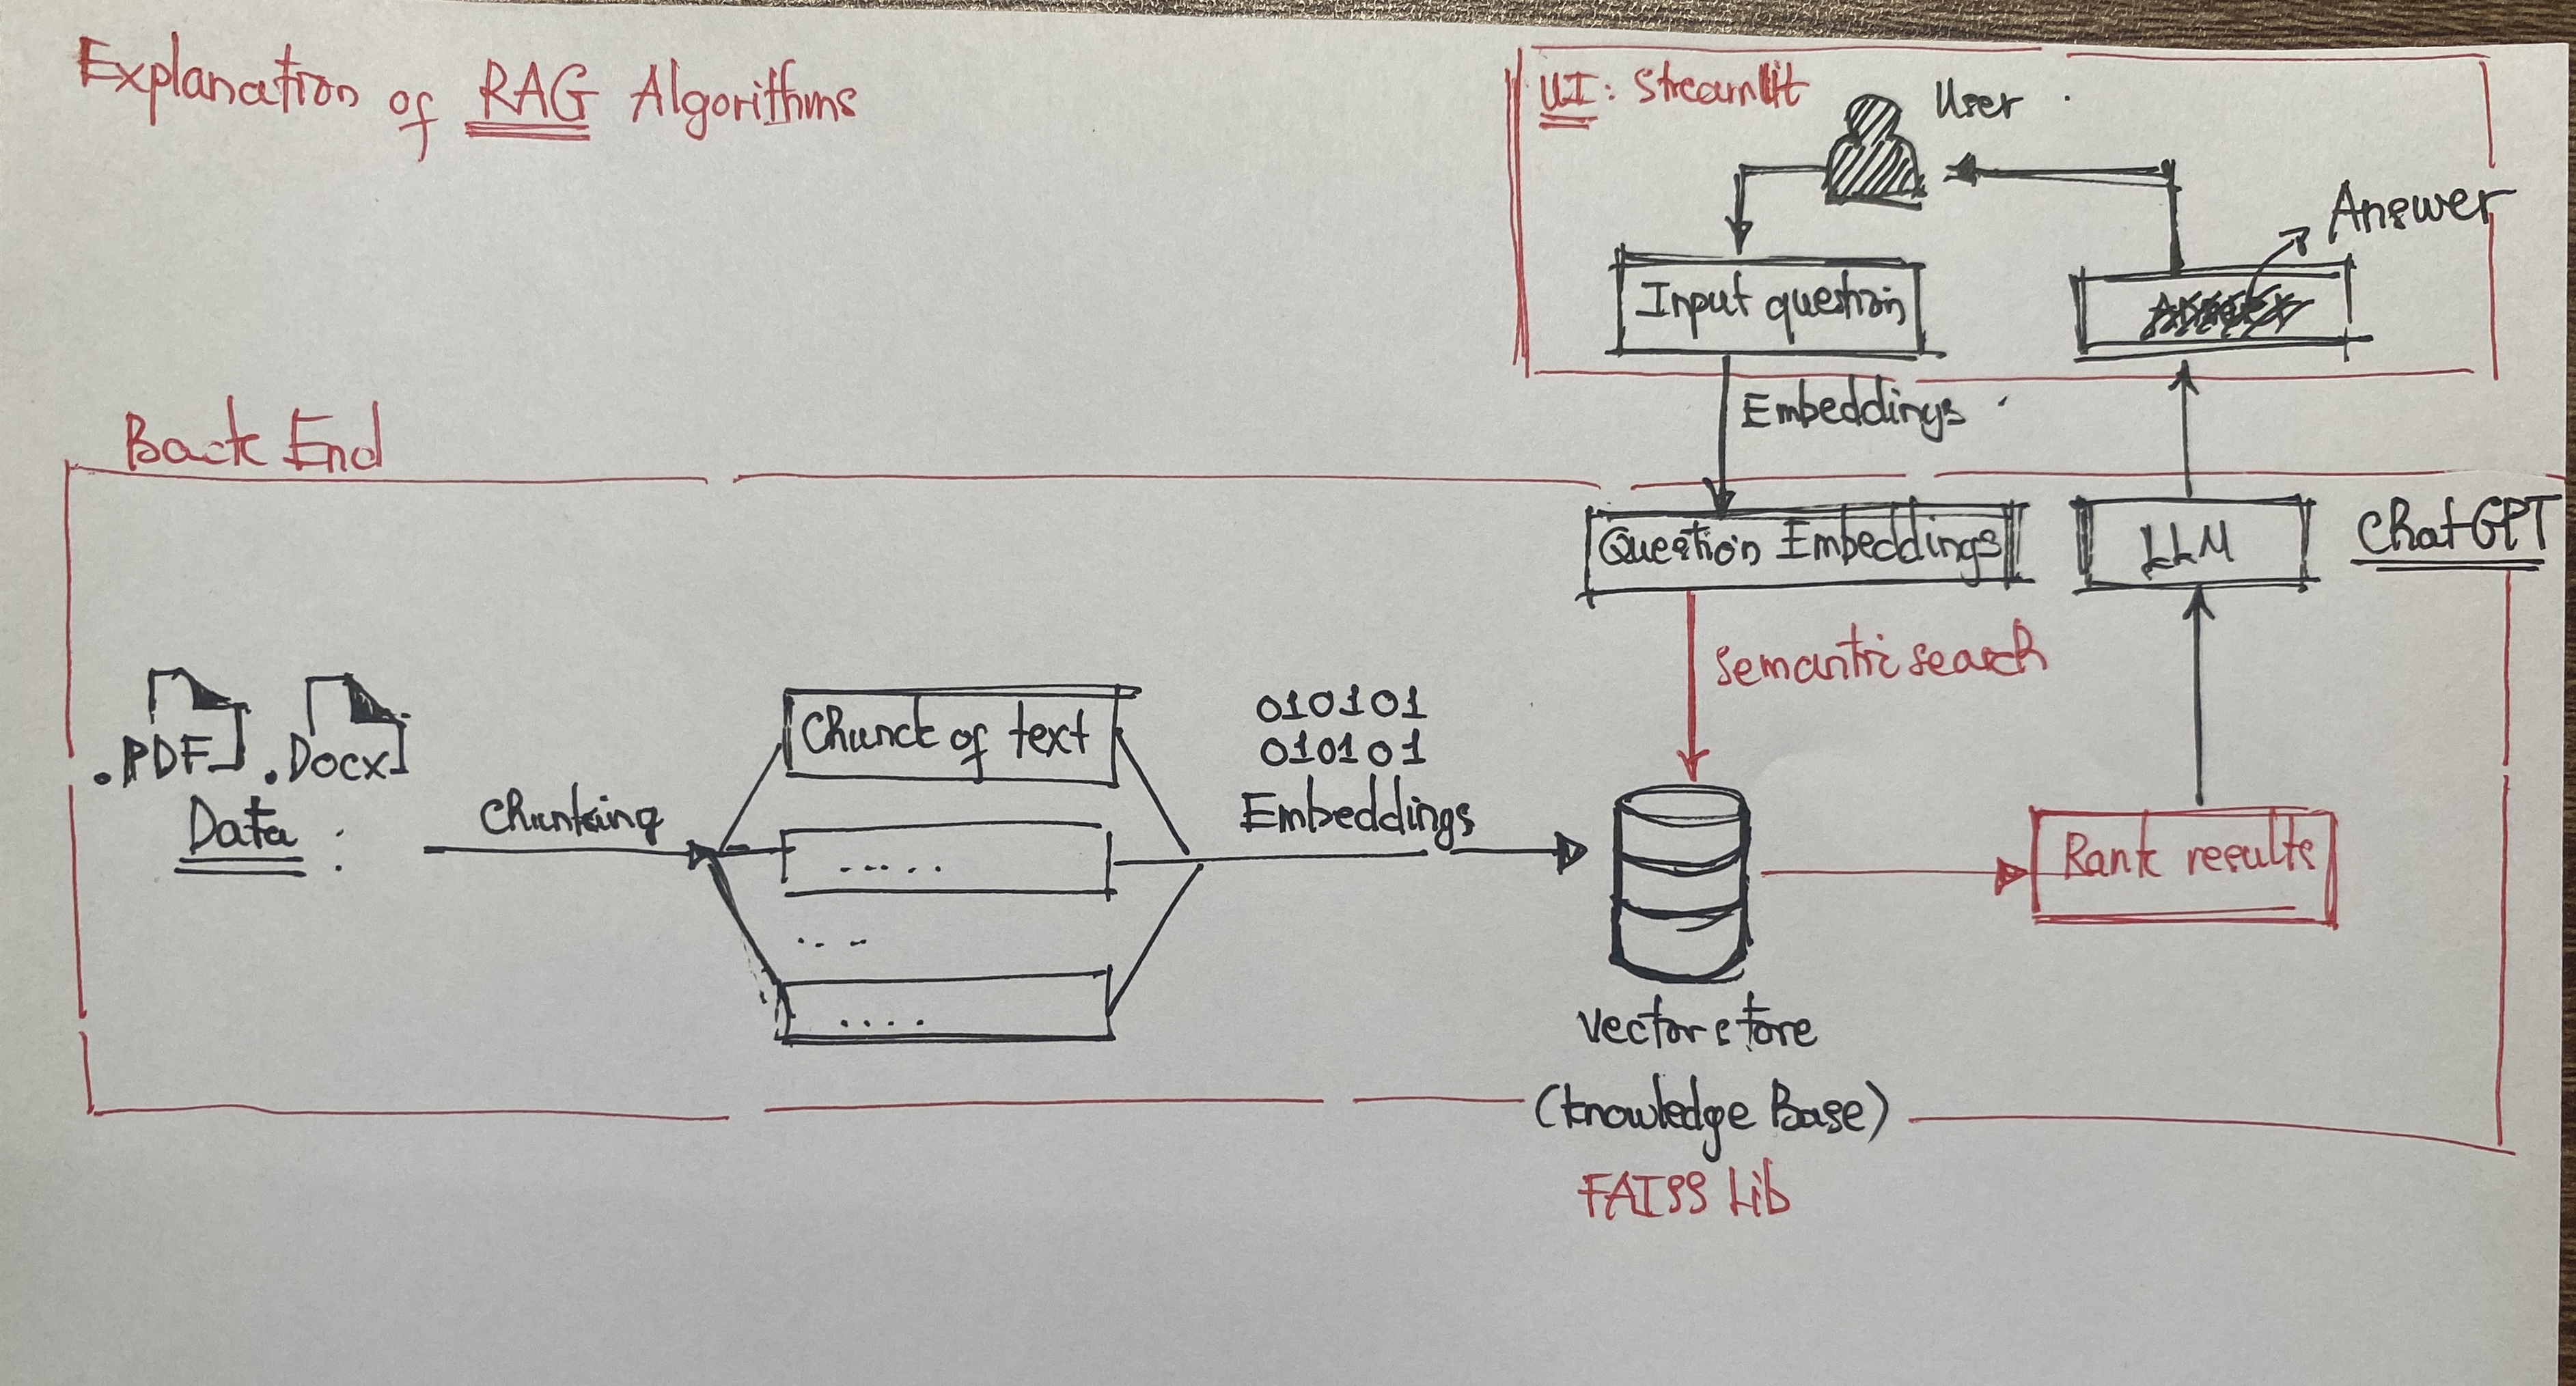 Explanation of RAG Algorithms
UI: Streamlit
User
Answer
Input question
Embeddings
Back End
Question Embeddings
LLM
ChatGPT
semantic search
.PDF
.Docx
Data :
Chunking
Chunck of text
.....
...
....
010101
010101
Embeddings
Rank results
vector store
(knowledge Base)
FAISS Lib